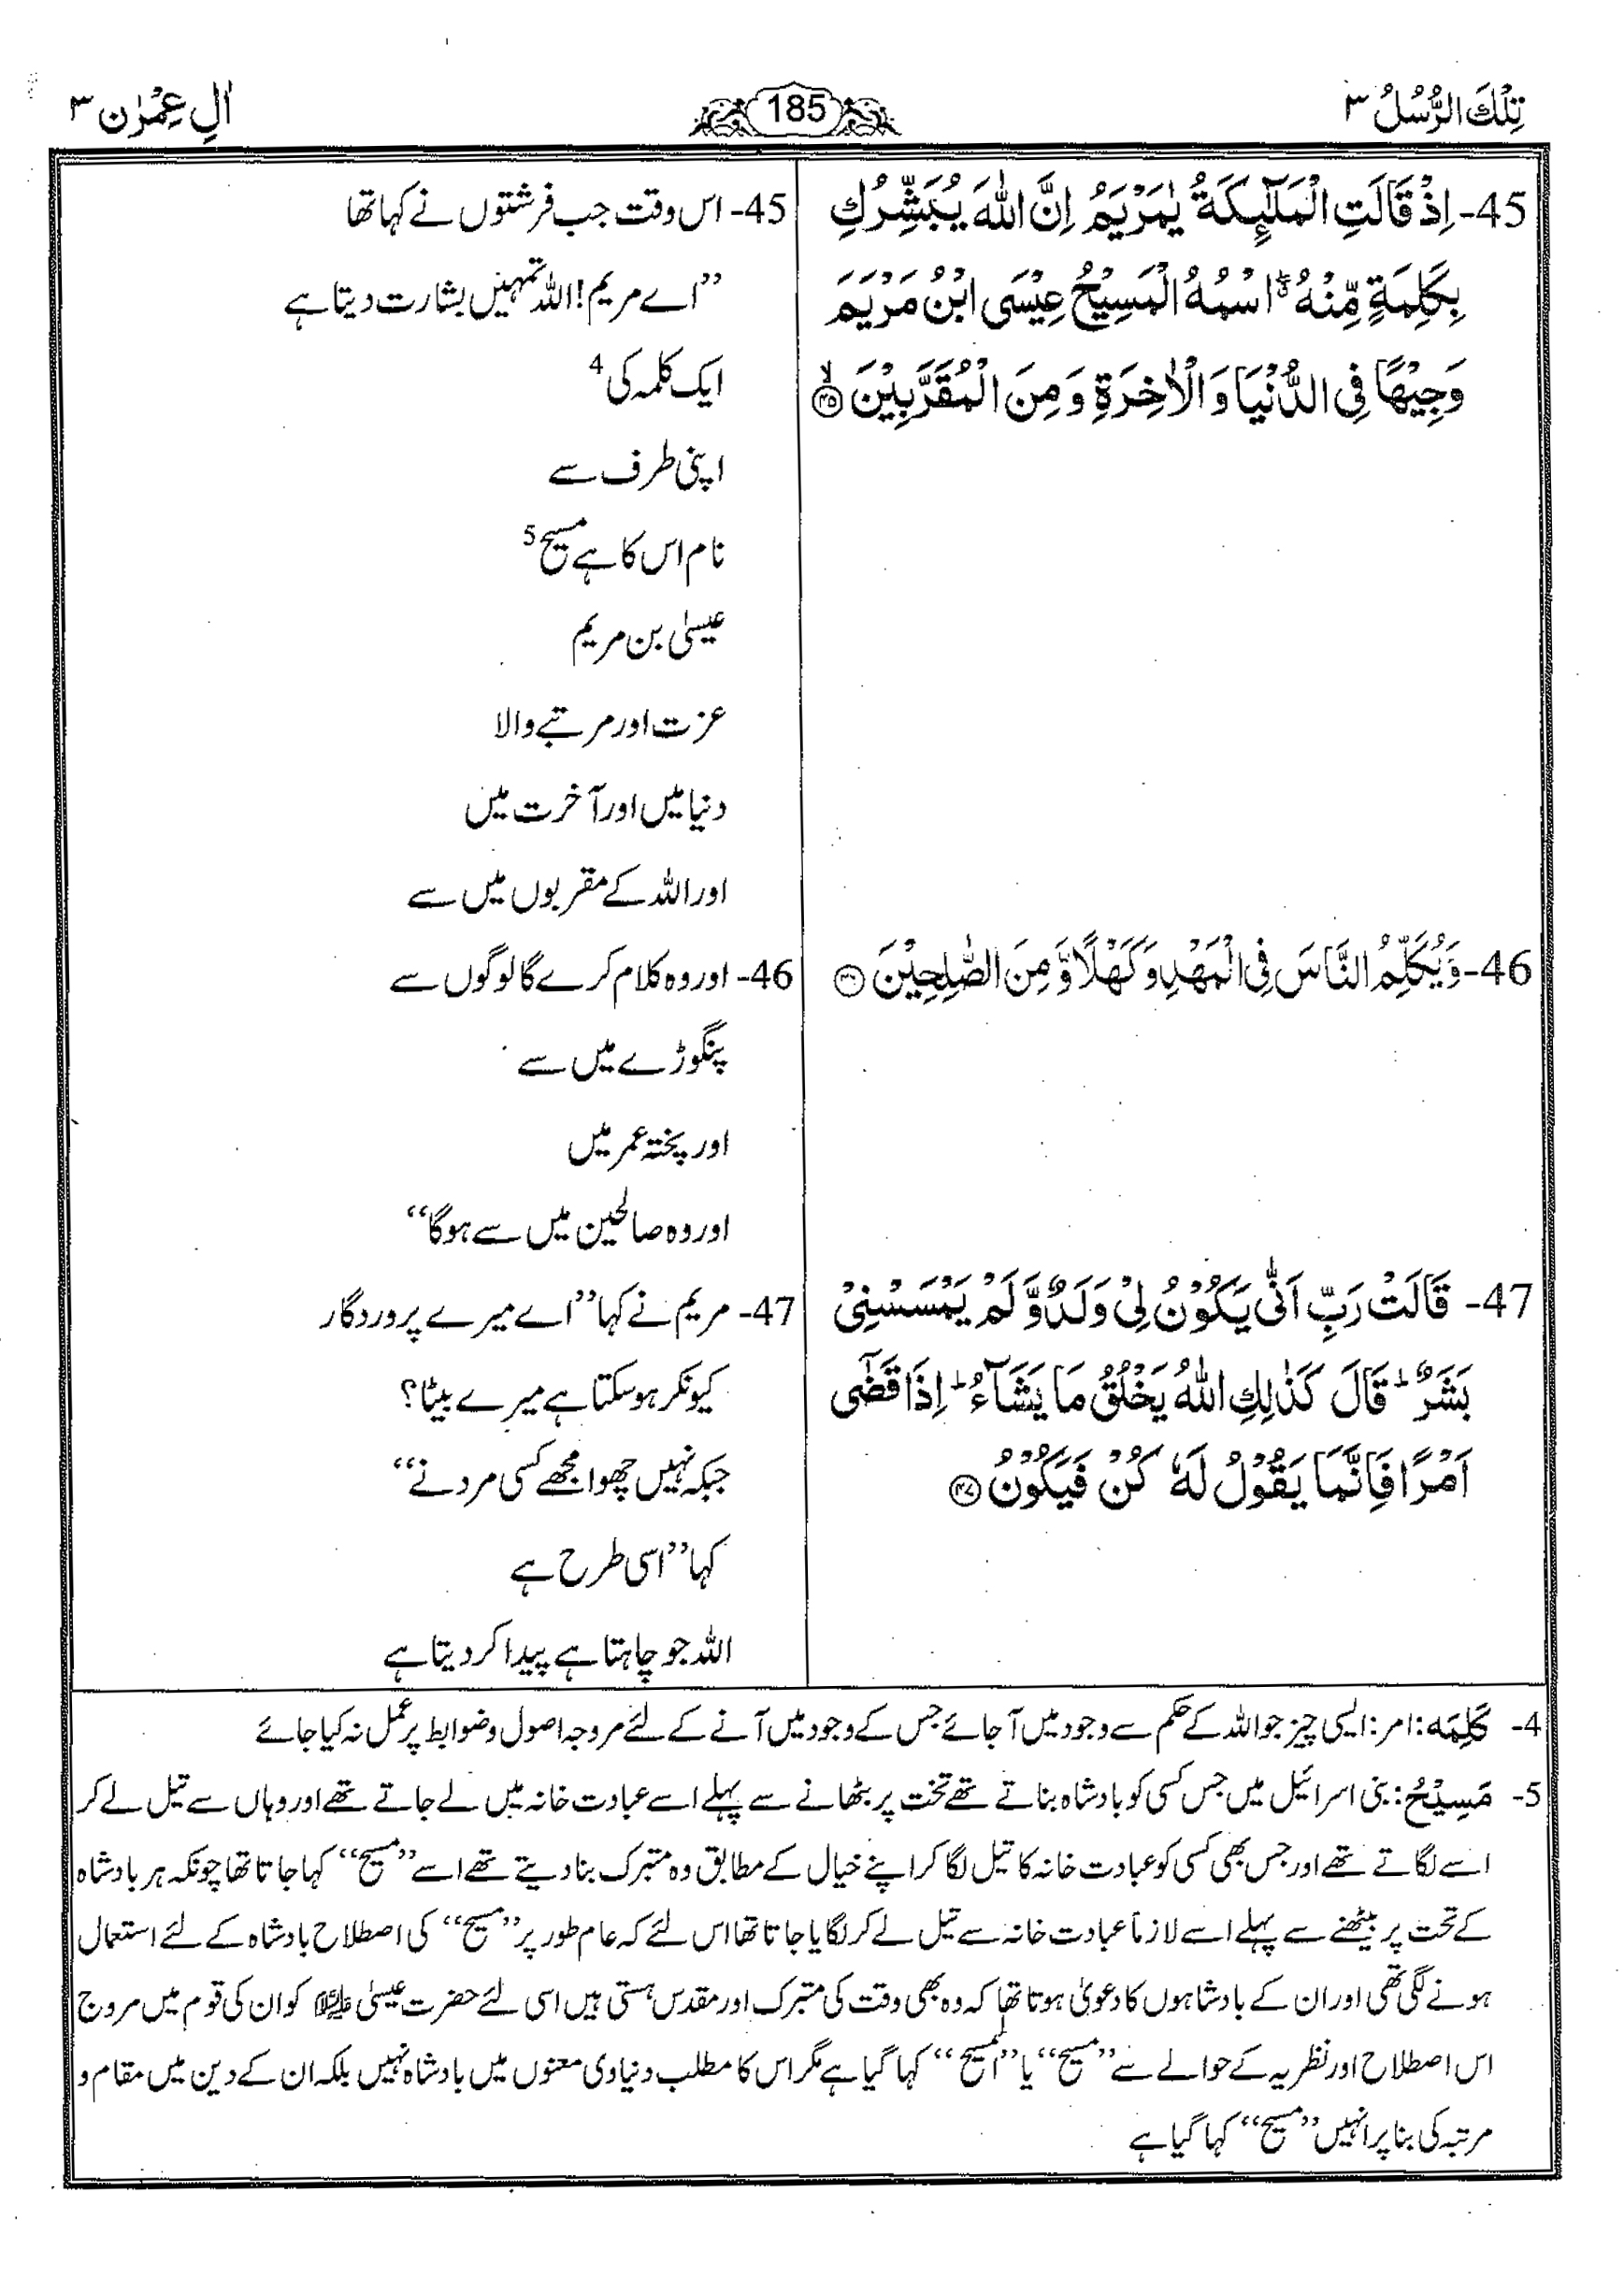 تِلْكَ الرُّسُلُ ۳
185
اٰلِ عِمْرٰن ۳
45- اِذْ قَالَتِ الْمَلٰٓئِكَةُ يٰمَرْيَمُ اِنَّ اللّٰهَ يُبَشِّرُكِ
بِكَلِمَةٍ مِّنْهُ ۖ اسْمُهُ الْمَسِيْحُ عِيْسَى ابْنُ مَرْيَمَ
وَجِيْهًا فِي الدُّنْيَا وَالْاٰخِرَةِ وَمِنَ الْمُقَرَّبِيْنَ ۙ ۴۵
46- وَيُكَلِّمُ النَّاسَ فِي الْمَهْدِ وَكَهْلًا وَّمِنَ الصّٰلِحِيْنَ ۴۶
47- قَالَتْ رَبِّ اَنّٰى يَكُوْنُ لِيْ وَلَدٌ وَّلَمْ يَمْسَسْنِيْ
بَشَرٌ ؕ قَالَ كَذٰلِكِ اللّٰهُ يَخْلُقُ مَا يَشَآءُ ؕ اِذَا قَضٰٓى
اَمْرًا فَاِنَّمَا يَقُوْلُ لَهٗ كُنْ فَيَكُوْنُ ۴۷
45- اس وقت جب فرشتوں نے کہا تھا
”اے مریم! اللہ تمہیں بشارت دیتا ہے
ایک کلمہ کی 4
اپنی طرف سے
نام اس کا ہے مسیح 5
عیسیٰ بن مریم
عزت اور مرتبے والا
دنیا میں اور آخرت میں
اور اللہ کے مقربوں میں سے
46- اور وہ کلام کرے گا لوگوں سے
پنگوڑے میں سے
اور پختہ عمر میں
اور وہ صالحین میں سے ہوگا“
47- مریم نے کہا ”اے میرے پروردگار
کیونکر ہو سکتا ہے میرے بیٹا؟
جبکہ نہیں چھوا مجھے کسی مرد نے“
کہا ”اسی طرح ہے
اللہ جو چاہتا ہے پیدا کر دیتا ہے
4- كَلِمَه: امر: ایسی چیز جو اللہ کے حکم سے وجود میں آ جائے جس کے وجود میں آنے کے لئے مروجہ اصول وضوابط پر عمل نہ کیا جائے
5- مَسِيْحُ: بنی اسرائیل میں جس کسی کو بادشاہ بناتے تھے تخت پر بٹھانے سے پہلے اسے عبادت خانہ میں لے جاتے تھے اور وہاں سے تیل لے کر
اسے لگاتے تھے اور جس بھی کسی کو عبادت خانہ کا تیل لگا کر اپنے خیال کے مطابق وہ متبرک بنا دیتے تھے اسے ”مسیح“ کہا جاتا تھا چونکہ ہر بادشاہ
کے تخت پر بیٹھنے سے پہلے اسے لازماً عبادت خانہ سے تیل لے کر لگایا جاتا تھا اس لئے کہ عام طور پر ”مسیح“ کی اصطلاح بادشاہ کے لئے استعمال
ہونے لگی تھی اور ان کے بادشاہوں کا دعویٰ ہوتا تھا کہ وہ بھی وقت کی متبرک اور مقدس ہستی ہیں اسی لئے حضرت عیسیٰ علیہ السلام کو ان کی قوم میں مروج
اس اصطلاح اور نظریہ کے حوالے سے ”مسیح“ یا ”المسیح“ کہا گیا ہے مگر اس کا مطلب دنیاوی معنوں میں بادشاہ نہیں بلکہ ان کے دین میں مقام و
مرتبہ کی بنا پر انہیں ”مسیح“ کہا گیا ہے